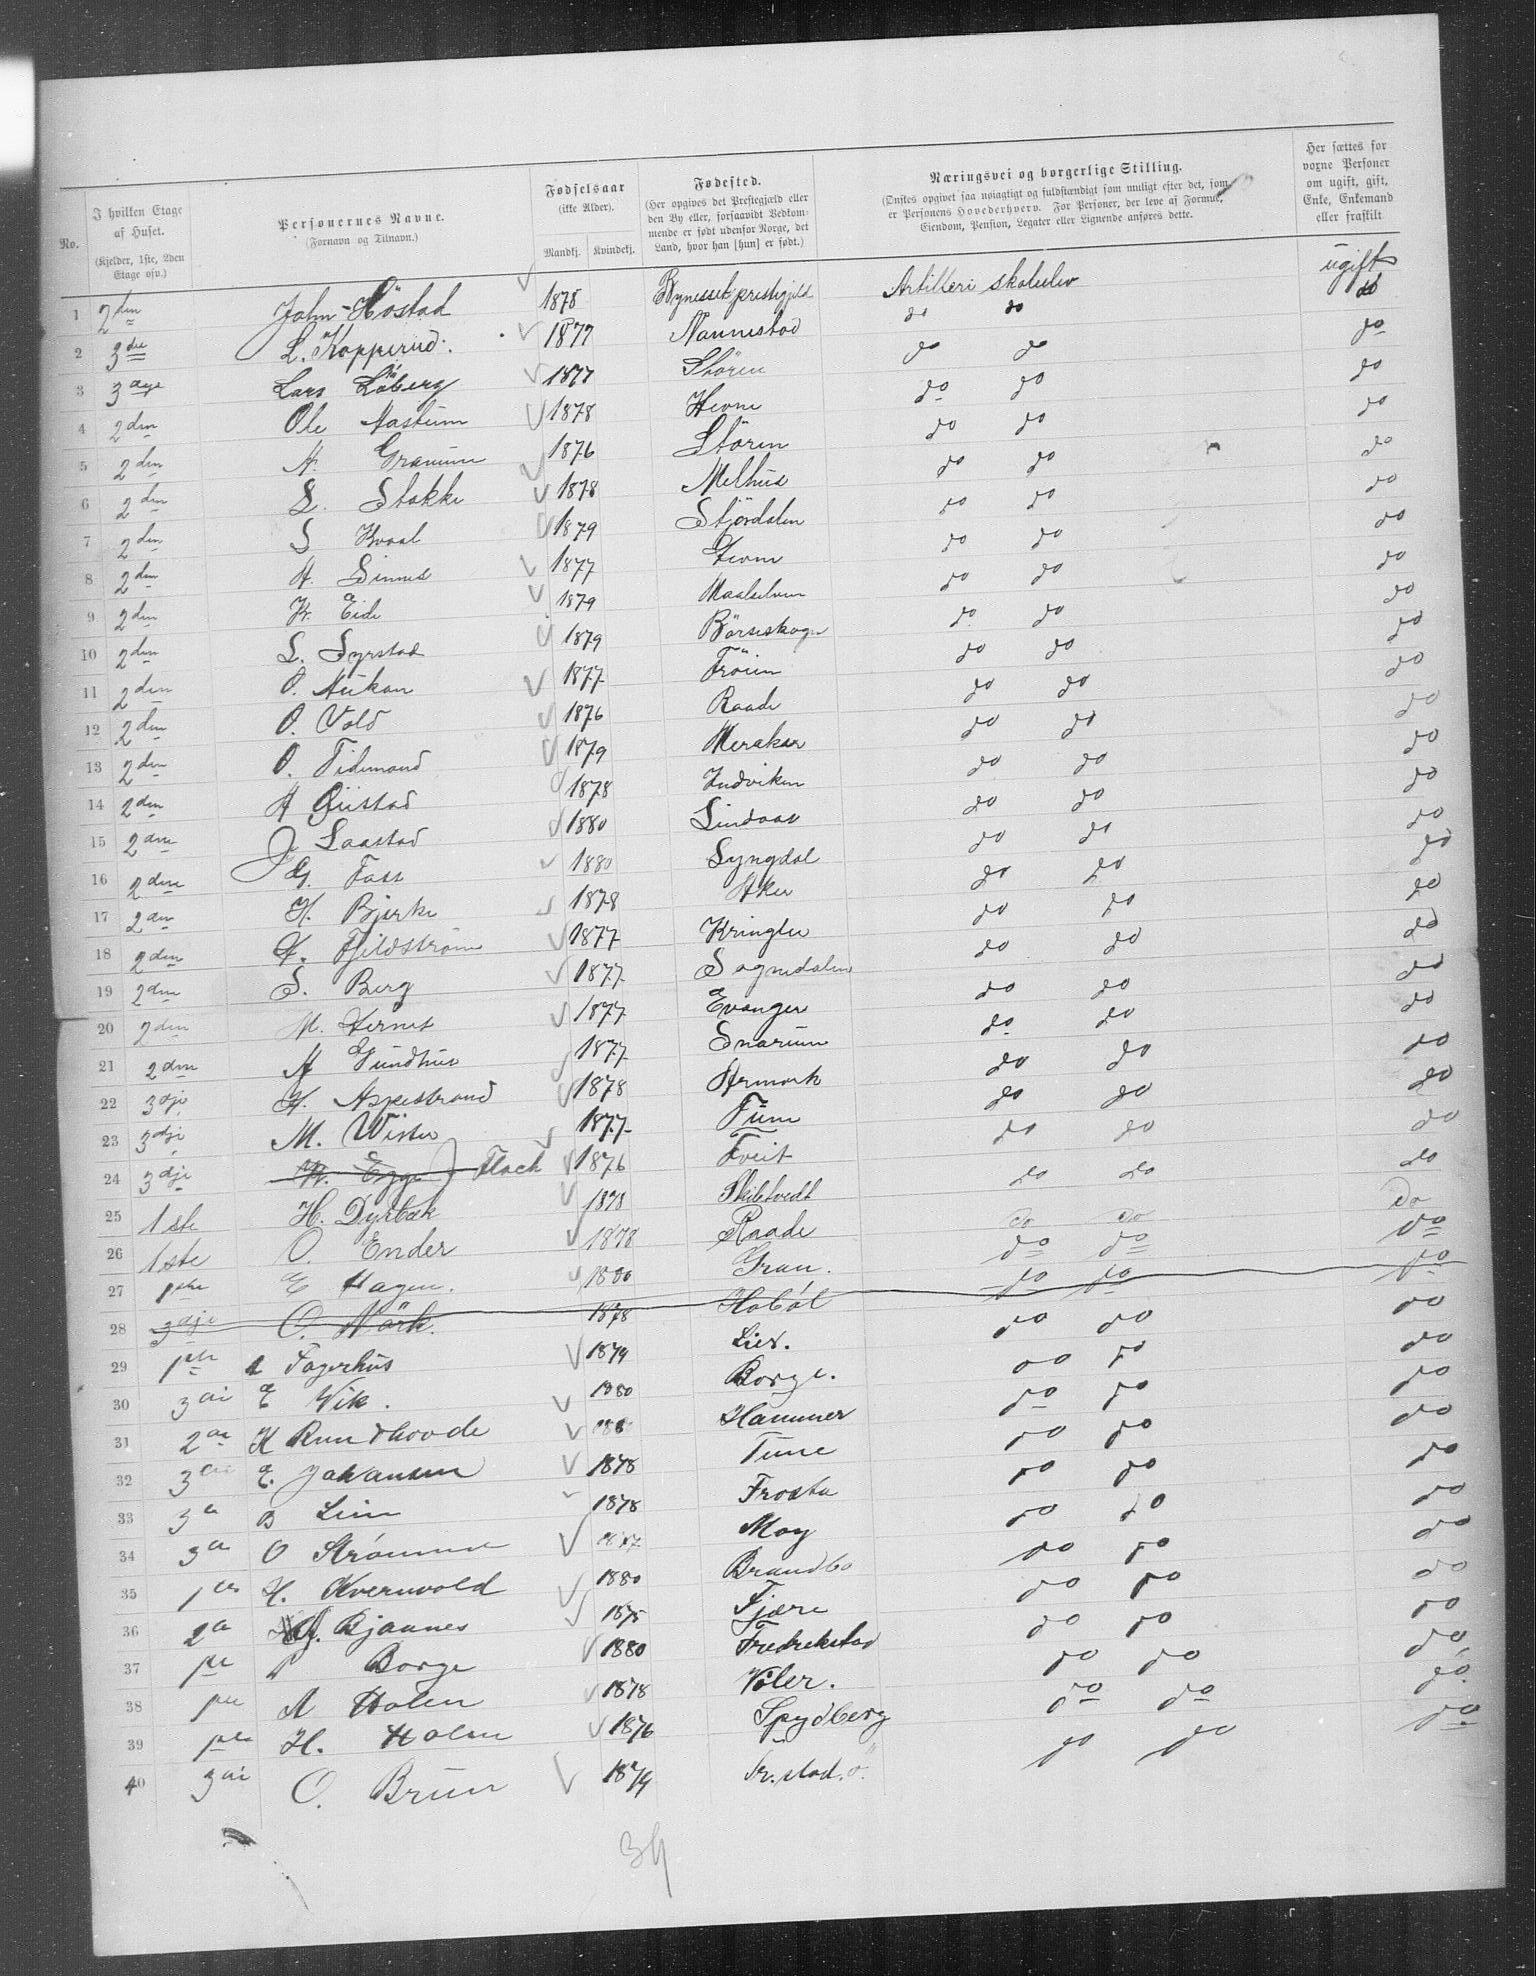 No.
I hvilken Etage af Huset.
(Kjelder, 1ste, 2den Etage osv.)
Personernes Navne.
(Fornavn og Tilnavn.)
Fødselsaar
(ikke Alder).
Mandkj. Kvindekj.
Fødested.
(Her opgives det Prestegjæld eller
den By eller, forsaavidt Vedkom-
mende er født udenfor Norge, det
Land, hvor han [hun] er født.)
Næringsvei og borgerlige Stilling.
(Ønskes opgivet saa nøiagtigt og fuldstændigt som muligt efter det, som
er Personens Hovederhverv. For Personer, der leve af Formue,
Eiendom, Pension, Legater eller Lignende anføres dette.
Her sættes for
voxne Personer
om ugift, gift,
Enke, Enkemand
eller fraskilt
1 2den John Höstad 1878 Artilleri skoleelev ugift
2 3die L. Kopperud. 1877 Nannestad do do do
3 3 Lars Löberg 1877 Stören do do do
4 2den Ole Aastum 1878 Hevne do do do
5 2den A. Granum 1876 Stören do do do
6 2den L. Stokke 1878 Melhus do do do
7 2den S Kvaal 1879 Stjördalen do do do
8 2den A. Sinnes 1877 do do do
9 2den K. Eide 1879 Maalselven do do do
10 2den L. Syrstad 1879 Börseskogn do do do
11 2den O. Aukan 1877 Fröien do do do
12 2den O. Vold 1876 Raade do do do
13 2den O. Tidemand 1879 Meraker do do do
14 2den A Gustad 1878 Indviken do do do
15 2den J Saastad 1880 Lindaas do do do
16 2den G. Foss 1880 Lyngdal do do do
17 2den H. Bjerke 1878 Aker do do do
18 2den Fjeldström 1877 Kringler do do do
19 2den S. Berg 1877 Sognedalen do do do
20 2den M. Hernes 1877 Evanger do do do
21 2den A Gundhus 1877 Snarum do do do
22 3dje K. Aspestrand 1878 Ørmark do do do
23 3dje M. Wister 1877 Tune do do do
24 3dje K. Egge J Flack 1876 Tveit do do do
25 1ste H. Dyrbæk 1878 Skibtvedt do do do
26 1ste O. Ender 1878 Raade do do do
27 E Hagen. 1880 Gran. do do do
28 3dje O. Mörk. 1878 Haböl do do do
29 Fagerhus 1879 Lier. do do do
30 E Wik. 1880 Borge. do do do
31 K Rundhovde Hammer do do do
32 E. Johansen 1878 Tune do do do
33 B Lein 1878 Frosta do do do
34 O Strömme Moy do do do
35 H. Kvernvold 1880 Brandbo do do do
36 Bjaanes 1875 Fjære do do do
37 Borge 1880 Fredrekstad do do do
38 A Holen 1878 Våler. do do do
39 H. Holm 1876 Spydberg do do do
40 O. Brun 1879 Fr.stad. do do do
34